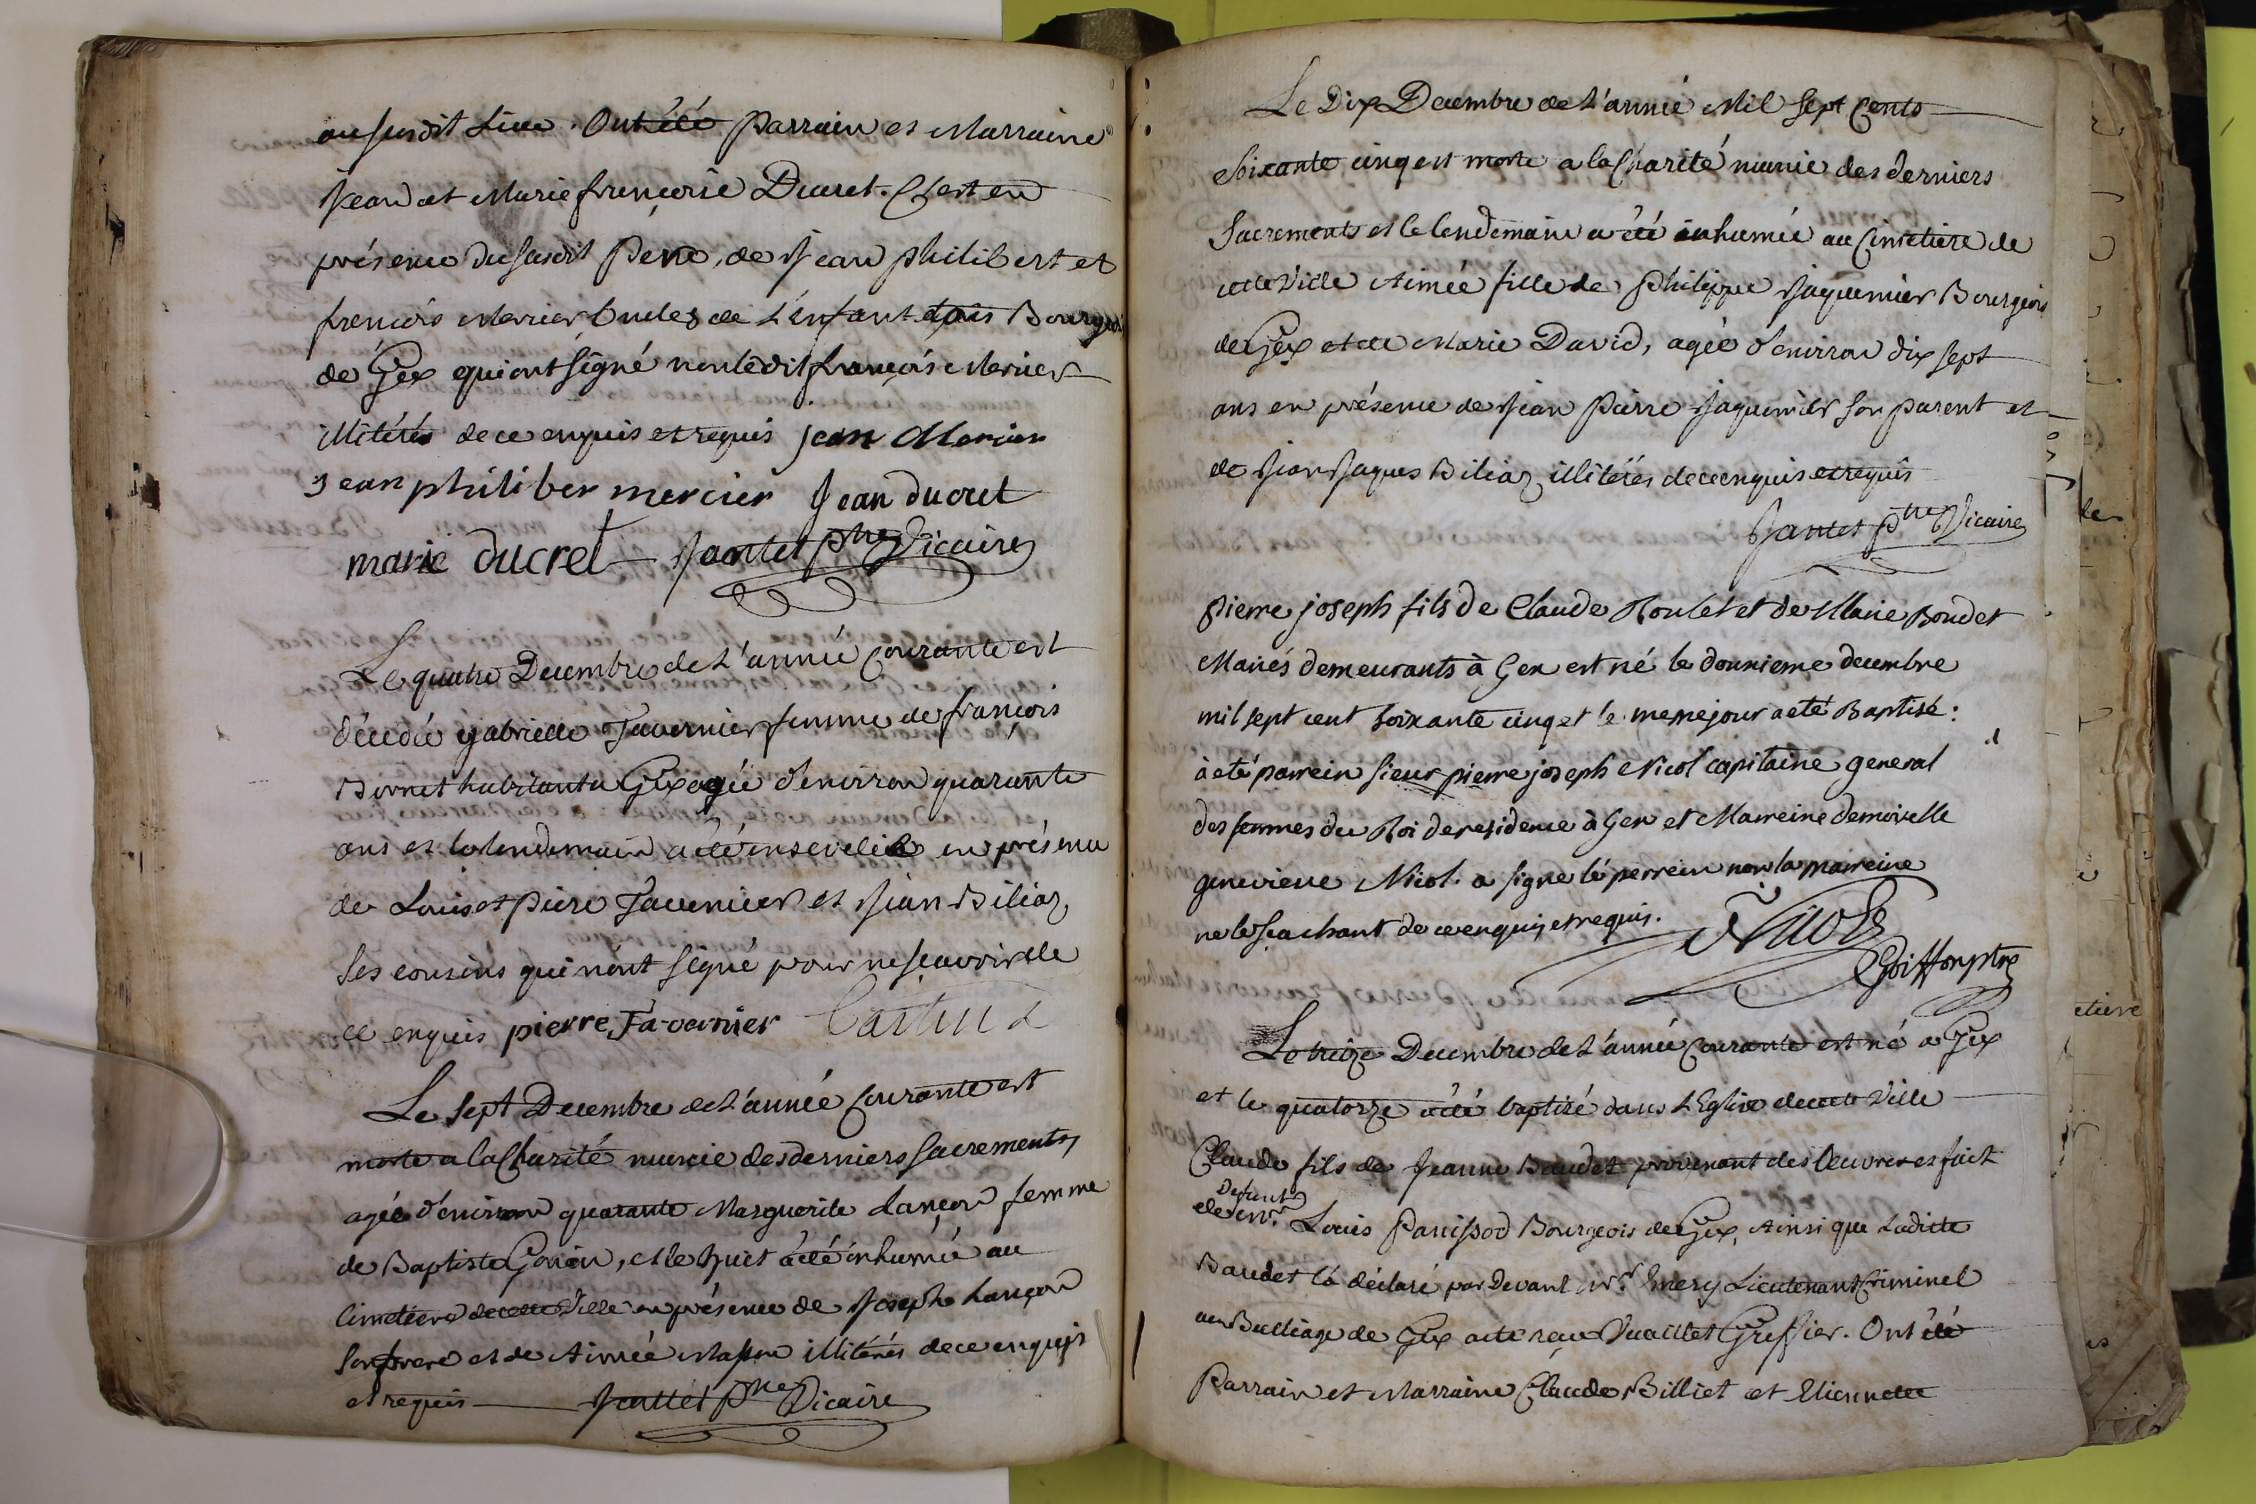 au susdit Lieu. Ont été Parrain et Marraine
Jean et Marie françoise Ducret. C'est en
présence du susdit Pere, de Jean philibert et
francois Mercier Oncles de L'enfant tous Bourgeois
de Gex qui ont signé non ledit françois Mercier
illitérés de ce enquis et requis jean Mercier
Jean philiber mercier Jean ducret
marie ducret Jantet ptre Vicaire
Le quatre Decembre de L'année Courante est
décedée gabrielle Tavernier femme de françois
habitant a Gex agée d'environ quarante
ans et le lendemain a été ensevelie en présence
de Louis et Piere Tavernier et Jean Biliaz
ses cousins qui n'ont signé pour ne sçavoir de
ce enquis pierre Ta-vernier
Le sept Decembre de L'année Courante est
morte a la Charité munie des derniers sacrements,
agée d'environ quarante Marguerite Lançon femme
de Baptiste, et le huit a été inhumée au
Cimetiere de cette Ville en présence de Joseph Lançon
son frere et de Aimée illitérés de ce enquis
et requis Jantet ptre Vicaire
Le Dix Decembre de L'année Mil Sept Cents
Soixante cinq est morte a la Charité munie des derniers
Sacrements et le lendemain a été inhumée au Cimetiere de
cette Ville Aimée fille de Philippe Jaquemier Bourgeois
de Gex et de Marie David, agée d'environ dix sept
ans en présence de Jean Pierre Jaquemier son parent et
de Jean Jaques Biliaz illitérés de ce enquis et requis
Jantet Ptre Vicaire
Pierre joseph fils de Claude Roulet et de Marie Boudet
Mariés demeurants à Gex est né le dounieme decembre
mil sept cent soixante cinq et le meme jour a eté Baptisé:
à eté parrein sieur pierre joseph Nicol capitaine general
des fermes du Roi de residence à Gex et Marreine demoiselle
genevieve Nicol. a signé le perrein non la marreine
ne le scachant de ce enquis et requis. Nicol
Goiffon ptre
Le treize Decembre de L'année Courante est né a Gex
et le quatorze a été baptisé dans L'Eglise de cette Ville
Claude fils de Jeanne Baudet provenant des Oeuvres et fait
Defunt
de Louis Panissod Bourgeois de Gex, Ainsi que Laditte
Baudet l'a déclaré par Devant Mr. Emery Lieutenant Criminel
au Bailliage de Gex acte reçu Vuaillet Greffier. Ont été
Parrain et Marraine Claude Billiet et Etiennette